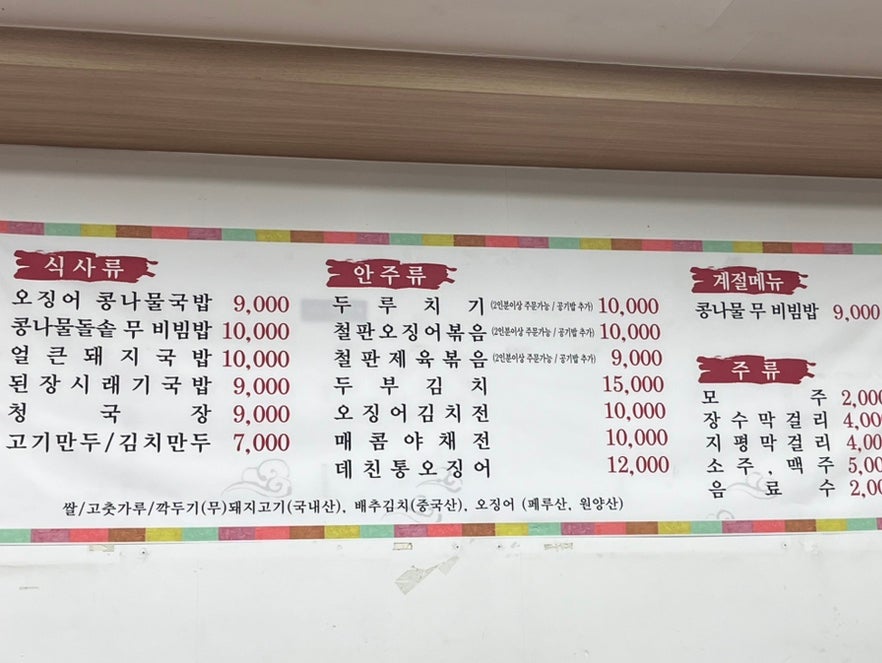 식사류
오징어 콩나물국밥 9,000
콩나물돌솥 무 비빔밥 10,000
얼큰돼지국밥 10,000
된장시래기국밥 9,000
청국장 9,000
고기만두/김치만두 7,000
안주류
두루치기 (2인분이상 주문가능 / 공기밥 추가) 10,000
철판오징어볶음 (2인분이상 주문가능 / 공기밥 추가) 10,000
철판제육볶음 (2인분이상 주문가능 / 공기밥 추가) 9,000
두부김치 15,000
오징어김치전 10,000
매콤야채전 10,000
데친통오징어 12,000
계절메뉴
콩나물 무 비빔밥 9,000
주류
모주 2,000
장수막걸리 4,00
지평막걸리 4,00
소주, 맥주 5,00
음료수 2,00
쌀/고춧가루/깍두기(무)돼지고기(국내산), 배추김치(중국산), 오징어 (페루산, 원양산)